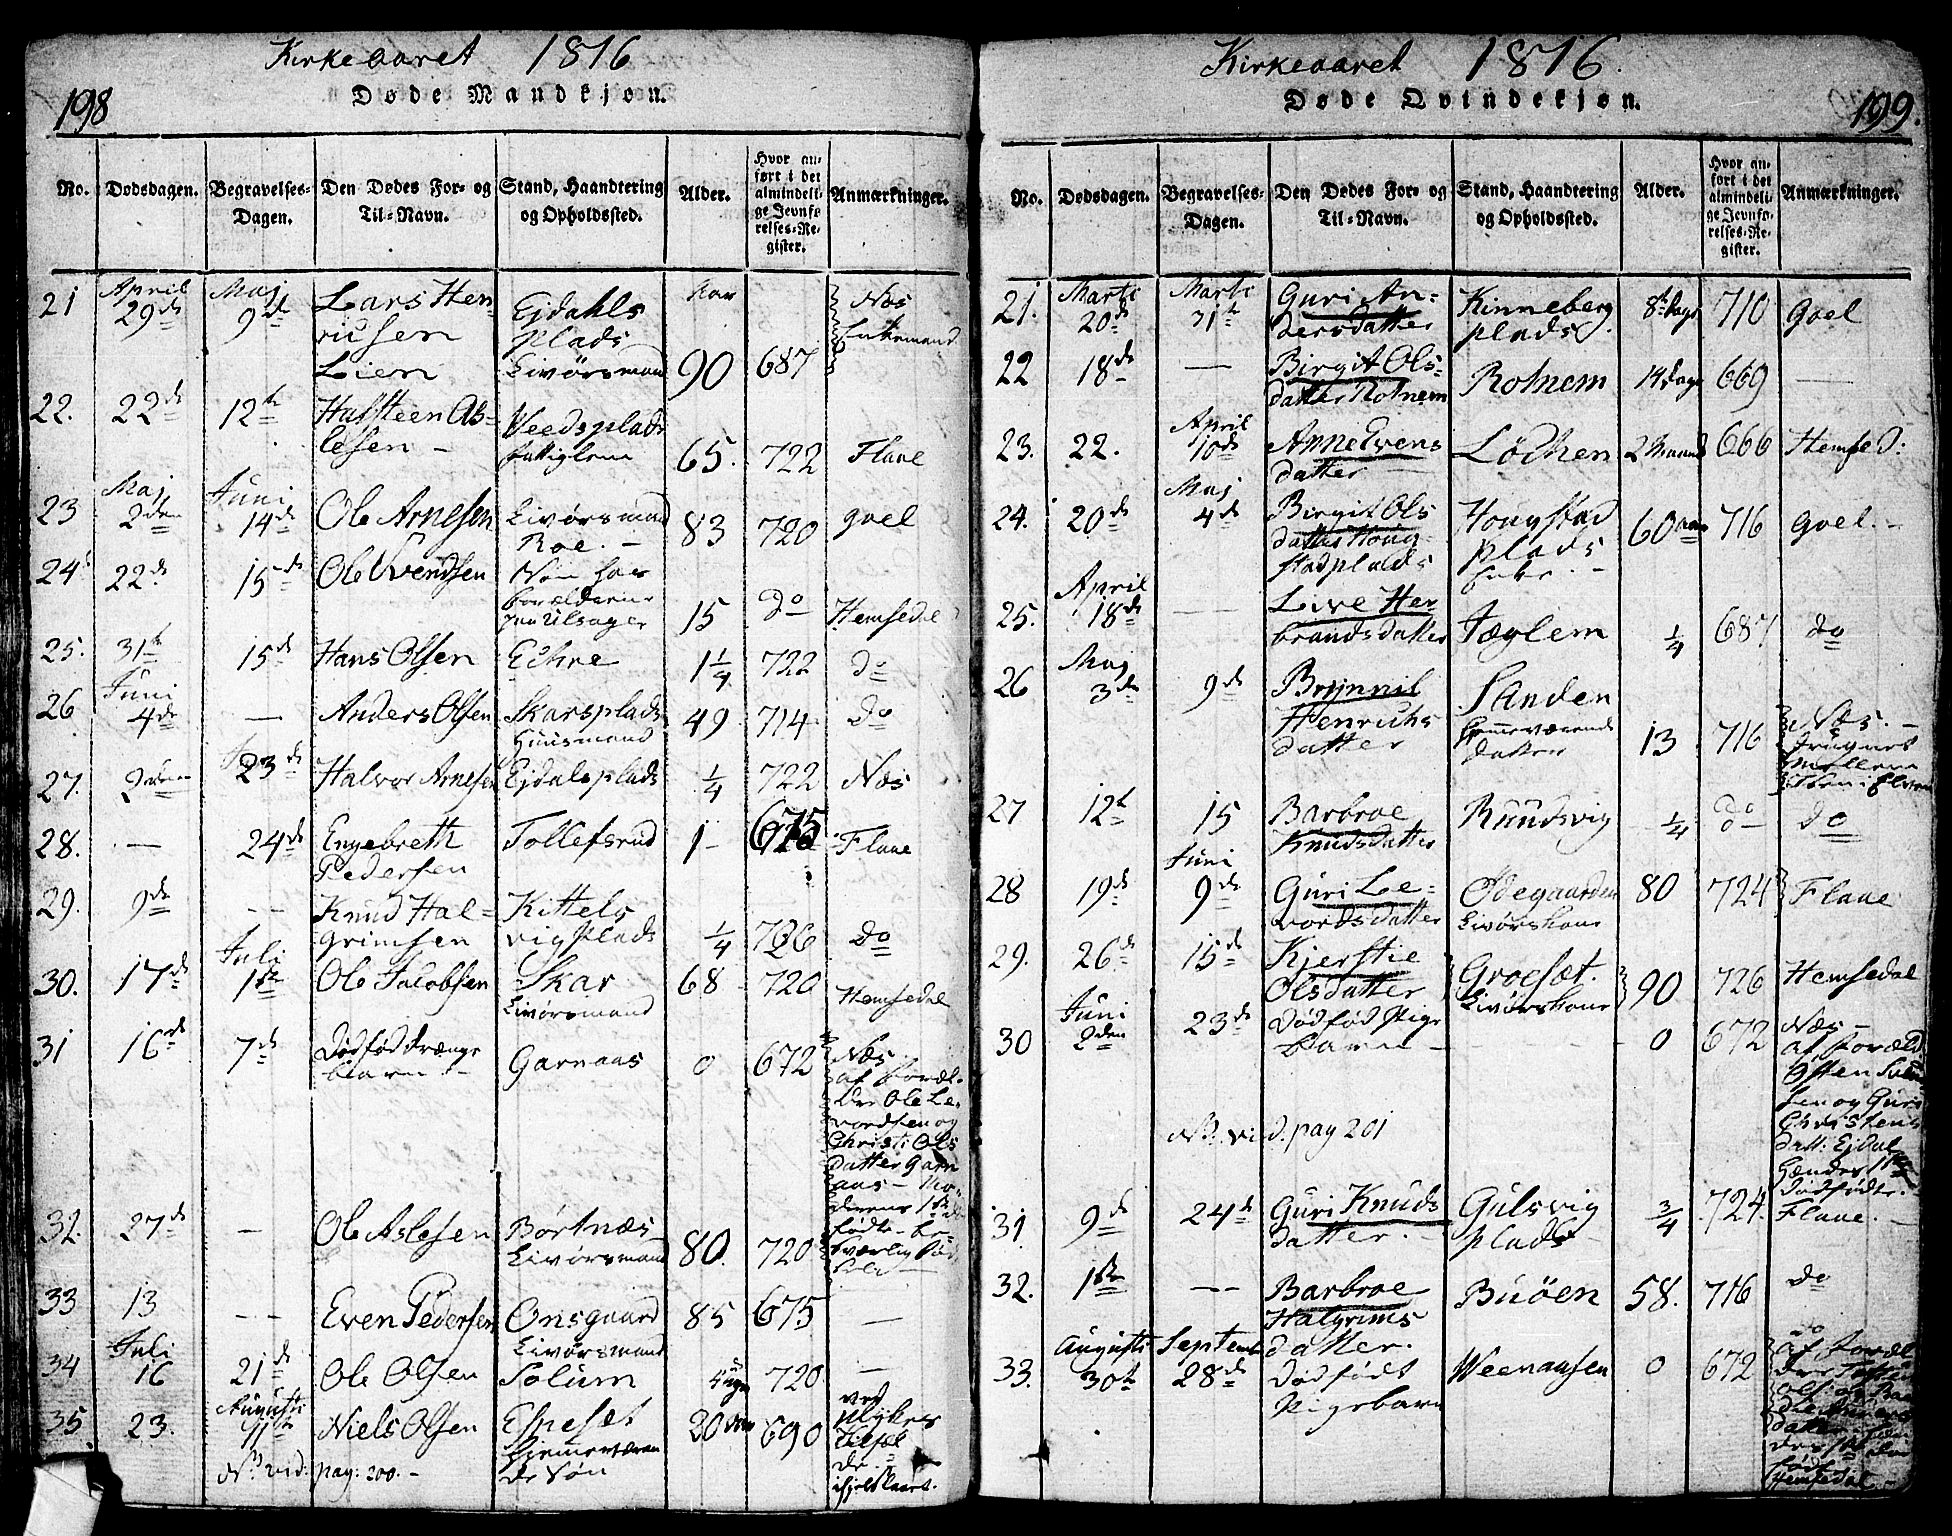 Kirkeaaret 1816
198
Døde Mandkjøn.
No.
Dødsdagen.
Begravelses-
Dagen.
Den Dødes For- og
Til-Navn.
Stand, Haandtering
og Opholdssted.
Alder.
Hvor an-
ført i det
almindeli-
ge Jevnfø-
relses-Re-
gister.
Anmærkninger.
21
April
29de
Maj
9de
Lars Hen
richsen
Lien
Ejdahls
plads
Livørsmand
Aar
90
687
Næs
Enkemand
22.
22de
12te
Halsteen As-
lesen
Veedsplads
65.
722
Flaae
23
Maj
2den
Juni
14de
Ole Arnesen
Livørsmand
Roe.
83
720
goel
24
22de
15de
Ole Svendsen
Søn hos
forælderne
paa Ulsager
15
do
Hemsedal
25.
31te
15de
Hans Olsen
Eikre
1 1/4
722
do
26
Juni
4de
—
Anders Olsen
Skarsplads
Huusmand
49
714
do
27.
23de
Halvor Arnesen
Ejdalsplads
1/4
722
Næs
28.
—
24de
Engebreth
Pedersen
Tollefsrud
1
675
Flaae
29.
9de
--
Knud Hal-
grimsen
Kittels
vigplads
1/4
726
do
30.
17de
Juli
1ste
Ole Jacobsen
Skar
Livørsmand
68
720
Hemsedal
31
16de
7de
Dødfød drænge
barn
Garnaas
0
672
Næs
af Foræl-
dre Ole Le-
vordsen og
Christi Ols
datter Garn
aas – Mo-
derens 1ste
fødte
32.
27de
—
Ole Aslesen
Børtnæs
Livørsmand
80.
720
33
13
--
Even Pedersen
Onsgaard
Livørsmand
85
675
—
34
Juli
16
21de
Ole Olsen
Solum
720
—
35.
23.
Augusti
11te
Niels Olsen
Espeset
hjemmeværen
de Søn
20
690
ved
Ulykkes
tilfæl
de
ihjelslaaet.
NB vid: pag: 200.
Kirkeaaret 1816.
199.
Døde Qvindekjøn.
No.
Dødsdagen.
Begravelses-
Dagen.
Den Dødes For- og
Til-Navn.
Stand, Haandtering
og Opholdssted.
Alder.
Hvor an-
ført i det
almindeli-
ge Jevnfø-
relses-Re-
gister.
Anmærkninger.
21.
Marti
20de
Marti
31te
Guri An-
dersdatter
Kinneberg
plads
8te dage
710
Goel
22
18de
—
Birgit Ols-
datter Rotnem
Rotnem
14 dage
669
—
23.
22.
April
10de
Anne Evens
datter
Løkken
2 Maaned
666
Hemsed:
24.
20de
Maj
4de
Birgit Ols
datter Houg-
stadplads
Hougstad
plads
Enke
60 aar
716
goel.
25.
April
18de
—
Live Her
brandsdatter
Tæglem
1/4
687
do
26
Maj
3de
9de
Brynnil
Henrichs
datter
Sanden
hjemmeværende
datter
13
716
Næs.
27
12te
15
Barbroe
Knudsdatter
Ruudsvig
1/4
do
do
28
19de
Juni
9de
Guri Le-
vordsdatter
Ødegaarden
Livørskone
80
724
Flaae
29.
26de
15de
Kjerstie
Olsdatter
Groeset
Livørskone
90
726
Hemsedal
30
Juni
2den
23de
Dødfød Pige
barn
0
672
Næs
af Foræld.
Østen
sen og Guri
Christens
datt: Ejdal
1ste
Dødfødte.
NB. vid. pag 201
31.
9de
24de
Guri Knuds
datter.
Gulsvig
plads
3/4
724
Flaae.
32.
1ste
--
Barbroe
Halgrims
datter.
Buøen
58.
716
do
33.
Augusti
30te
Septemb
28de
Dødfødt
Pigebarn
Weenaasen
0
672
af Foræl
dre
Hemsedal